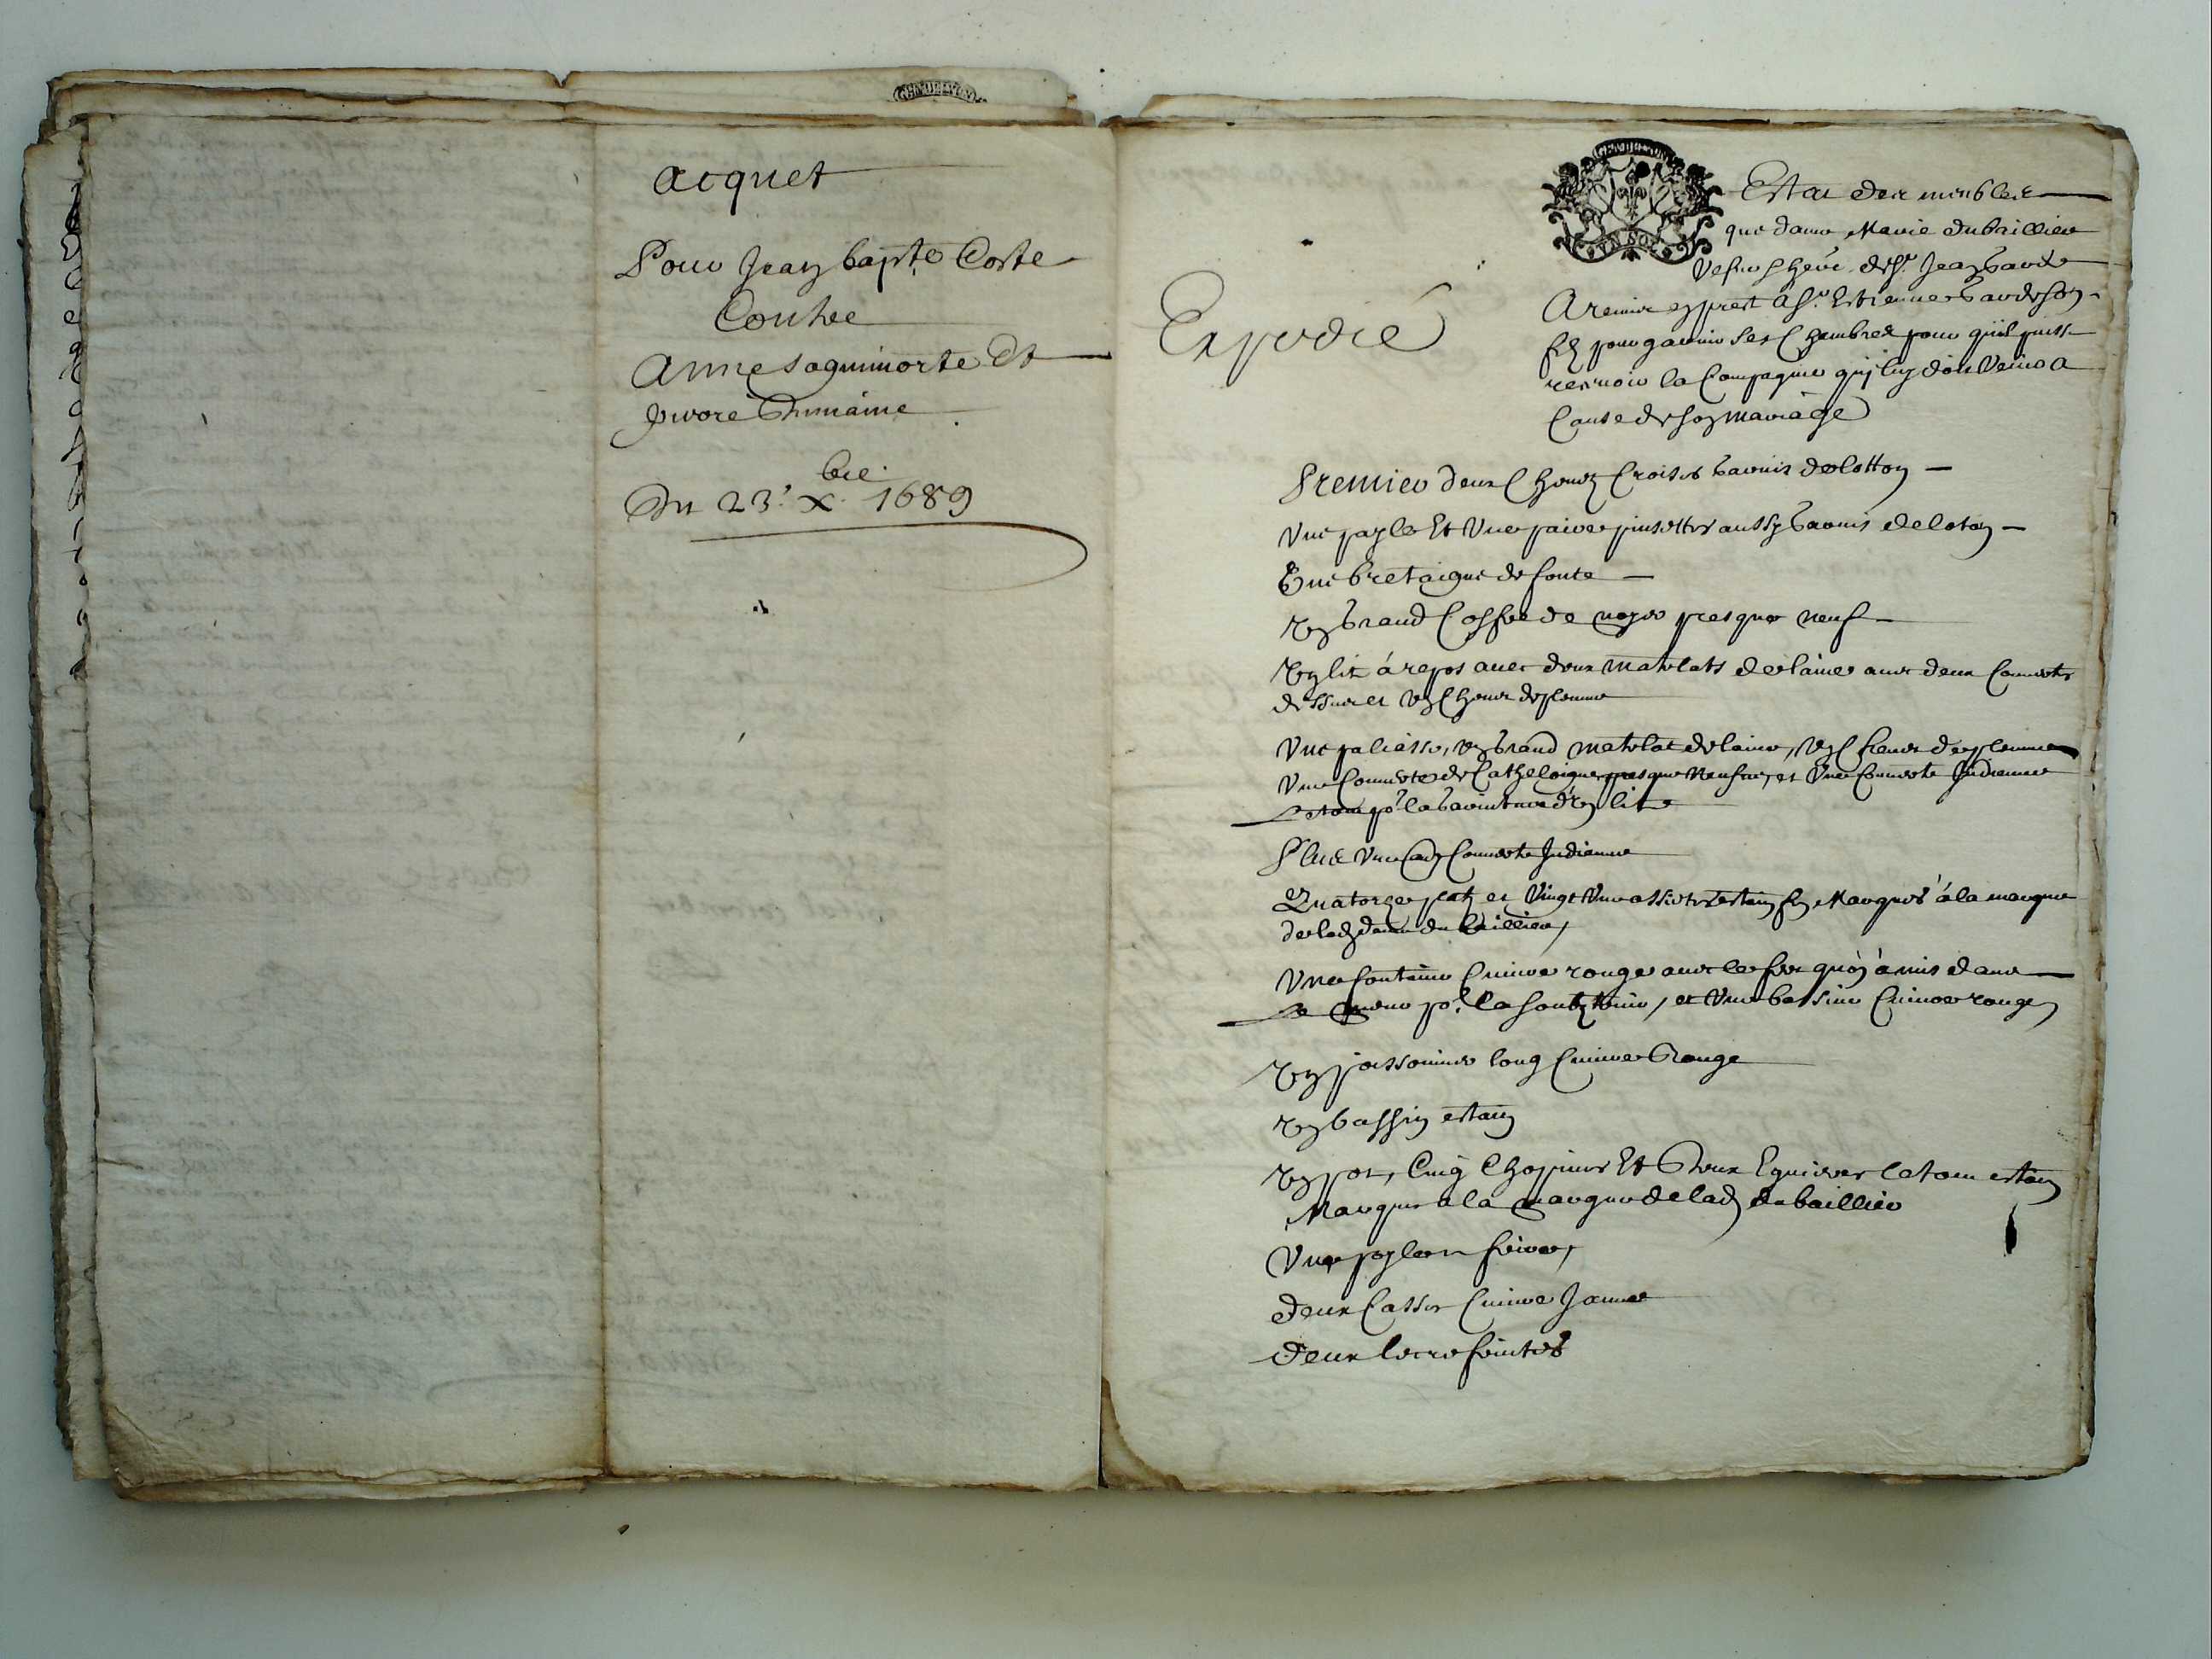 acquet
Pour Jean bapte Coste
Contre
Anne saguimorte et
pivoré Dumaine
bre
Du 23e x 1689
Expedié
UN SOL
Estat des meubles
que dame Marie dubaillier
vefve & herre de Sr Jean barde
a remis en prest a Sr Estienne barde son
filz pour garnir ses Chambres pour quil puisse
recevoir la Compagnie quj luy doit Venir a
Cause de son mariage
Premier deux Chenetz Croisés Garnis de lotton
Une payle Et Une paire pinsettes aussy Garnis de loton
Une bretaigne de fonte
Un Grand Coffre de noyer presque neuf
Un lit à repos avec deux matelats de laine avec deux Couvertes
dessus et Un Chevet de plume
Une paliasse, Un Grand matelat de laine, Un Chevet de plume
Une Couverte de Catheloigne presque neufve, et Une Couverte Indienne
Le tout pr la Garniture d'Un lit
Plus Une Couverte Indienne
Quatorze platz et Vingt Une assiettes estain fin Marqués à la marque
de lad dame du baillier,
Une fontaine Cuivre rouge avec le fer qu'on à mis dans
Le pr la soubztenir, et Une bassine Cuivre rouge
Un poissonnier long Cuivre Rouge
Un bassin estain
Un pot, Cinq Chopines Et Deux Eguieres le tout estain
Marqués a la marque de lad dubaillier
Une poyle a frire,
Deux Casses Cuivre Jaune
Deux lechefrittes